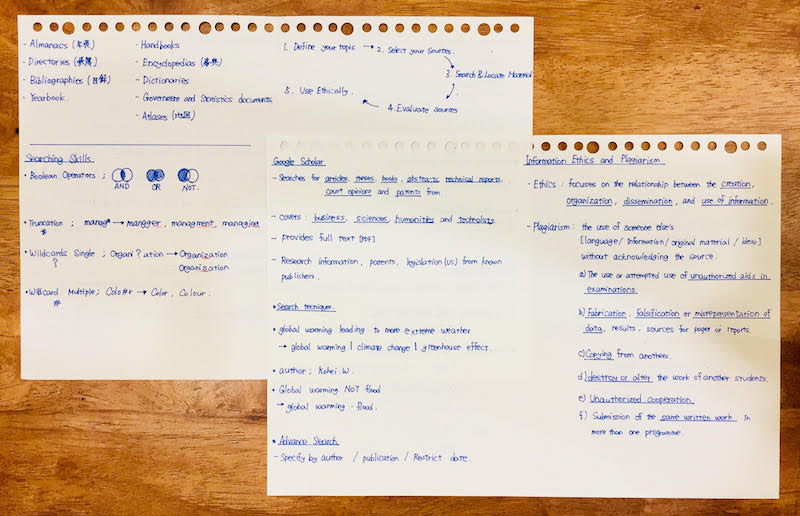 - Almanacs (年表)
- Directories (    )
- Bibliographies (目録)
- Yearbook.
- Handbooks
- Encyclopedias (    )
- Dictionaries
- Government and Statistics documents
- Atlases (地図)
1. Define your topic → 2. Select your Sources.
3. Search & Locate Material
4. Evaluate sources
5. Use Ethically.
Searching Skills
• Boolean Operators ;
AND OR NOT.
• Truncation ; manag* → manager, managment, managing
*
• Wildcards Single ; Organi?ation → Organization
? Organisation
• Wildcard Multiple ; Colo#r → Color, Colour.
#
Google Scholar
- Searches for articles, theses, books, abstracts technical reports,
court opinions and patents from
- covers : business, sciences, humanities and technology
- provides full text [PDF]
- Research information, patents, legislation (US) from known
publishers.
• Search tecniques.
• global warming leading to more extreme weather
→ global warming | climate change | greenhouse effect.
• author ; Kohei. W.
• Global warming NOT flood
→ global warming - flood.
• Advance Search
- Specify by author / publication / Restrict date.
Information Ethics and Plagiarism
- Ethics : focuses on the relationship between the creation,
organization, dissemination, and use of information.
- Plagiarism : the use of someone else's
[language / Information / original material / ideas]
without acknowledging the source.
a) The use or attempted use of unauthorized aids in
examinations.
b) Fabrication, falsification or misrepresentation of
data, results, sources for paper or reports.
c) Copying from another.
d) destroy or alter the work of another students.
e) Unauthorized cooperation.
f) Submission of the same written work in
more than one programme.